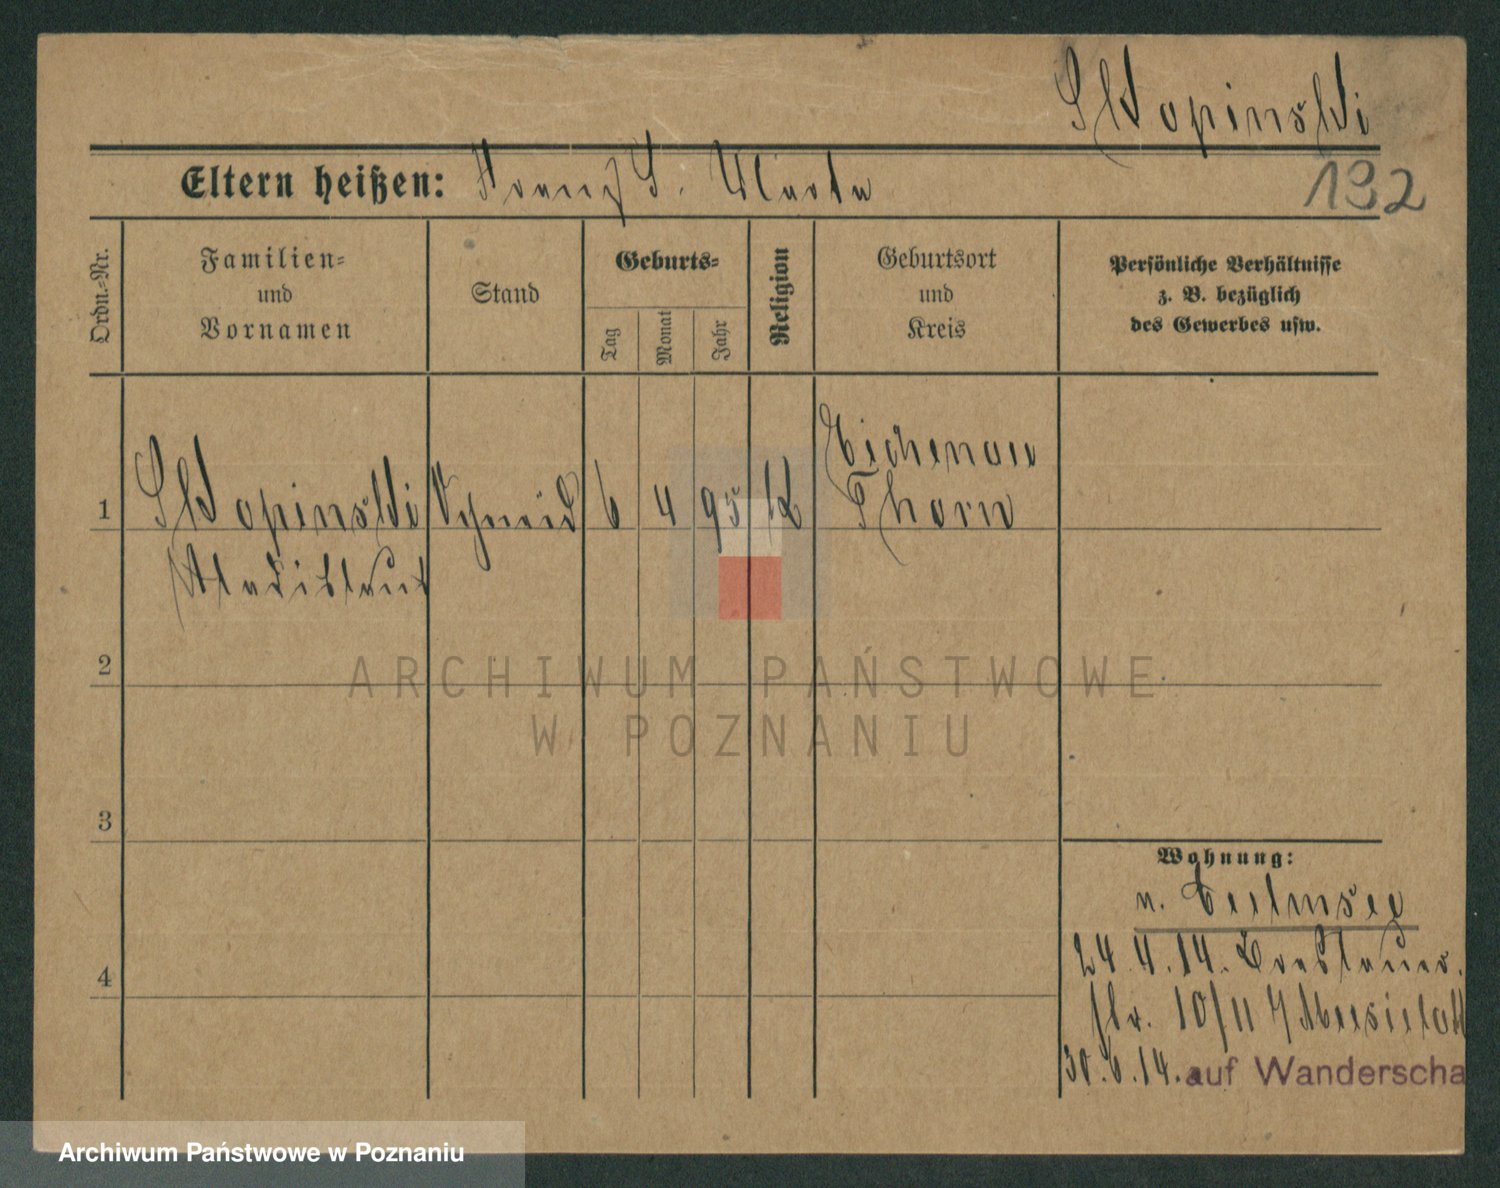 Skopinski
Eltern heißen: Franz S. Marta
192
Ordn.-Nr.
Familien-
und
Vornamen
Stand
Geburts-
Tag
Monat
Jahr
Religion
Geburtsort
und
Kreis
Persönliche Verhältnisse
z. B. bezüglich
des Gewerbes usw.
1
Skopinski
Schmied
6
4
95
K
Eichenau
Thorn
Wladislaus
2
ARCHIWUM PAŃSTWOWE
W POZNANIU
3
Wohnung:
n. Culmsee
4
24.4.14. Breslauer
str. 10/11
30.6.14. auf Wanderscha
Archiwum Państwowe w Poznaniu